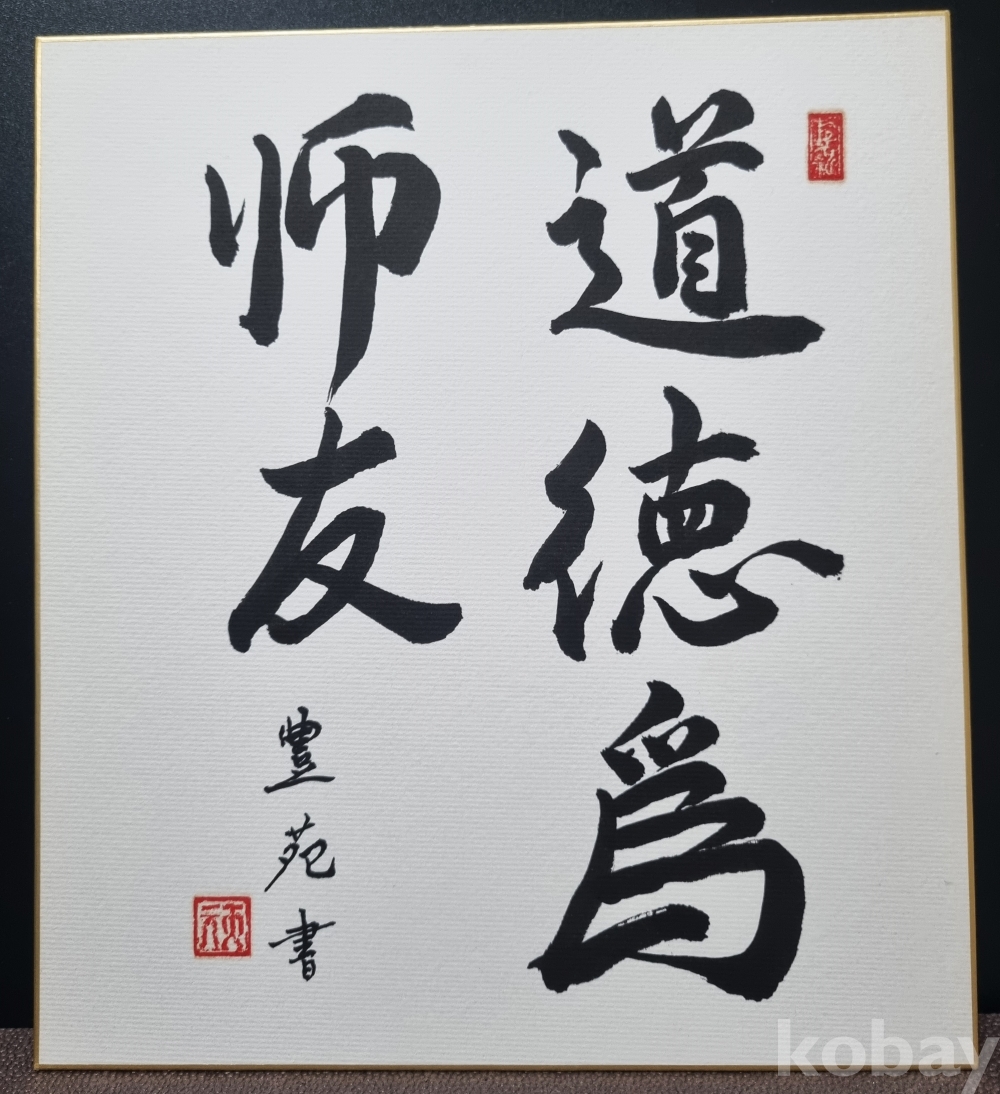 道德爲
师友
豐苑書
kobay